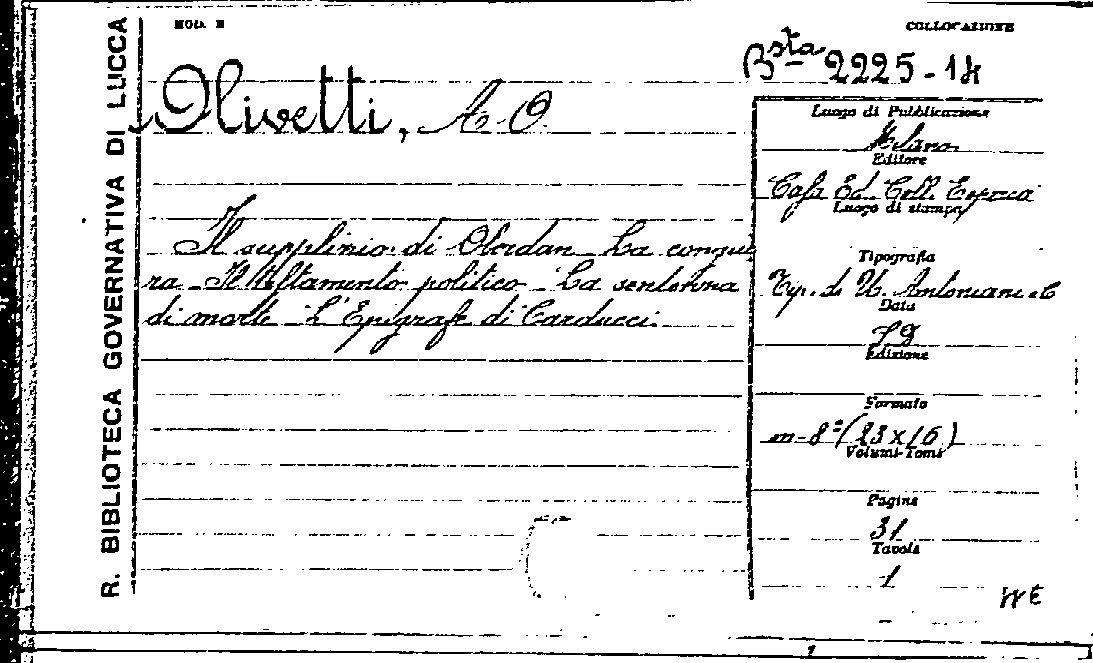 R. BIBLIOTECA GOVERNATIVA DI LUCCA
MOD. E
COLLOCAZIONE
Bsta 2225-14
Olivetti, A. O.
Il supplizio di Oberdan La congiu
ra - Il testamento politico - La sentenza
di morte - L'Epigrafe di Carducci.
Luogo di Pubblicazione
Milano
Editore
Casa Ed. Coll. Epoca
Luogo di stampa
Tipografia
Tip. di U. Antoniani e C
Data
Edizione
Formato
m-8° (23x16)
Volumi-Tomi
Pagine
31
Tavole
1